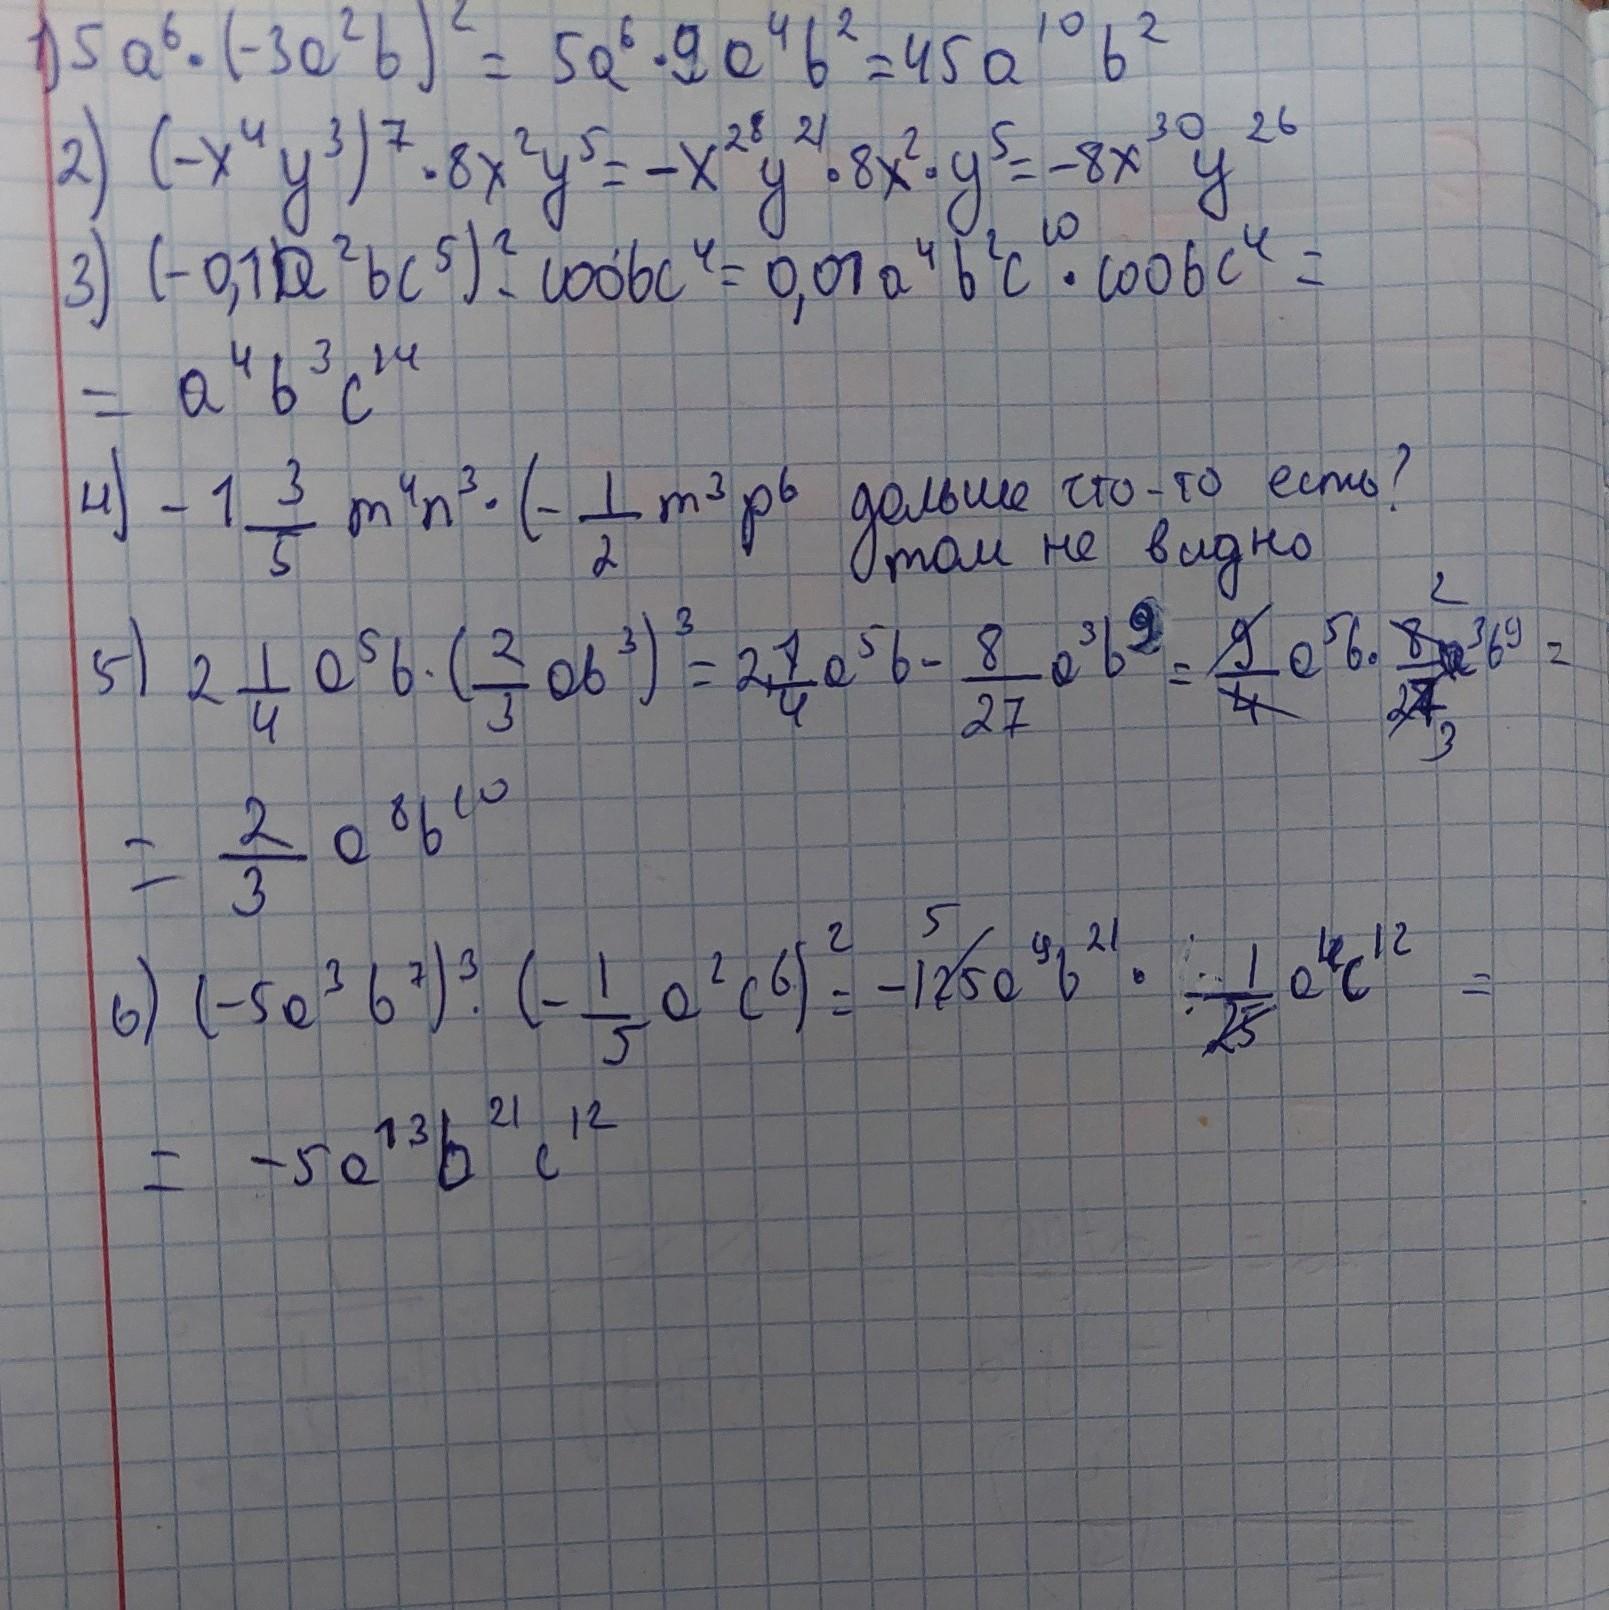 1) 5a⁶·(-3a²b)² = 5a⁶·9a⁴b² = 45a¹⁰b²
2) (-x⁴y³)⁷·8x²y⁵ = -x²⁸y²¹·8x²·y⁵ = -8x³⁰y²⁶
3) (-0,1a²bc⁵)²·100bc⁴ = 0,01a⁴b²c¹⁰·100bc⁴ =
= a⁴b³c¹⁴
4) -1 3/5 m⁴n³·(-1/2 m³p⁶ дальше что-то есть?
там не видно
5) 2 1/4 a⁵b·(2/3 ab³)³ = 2 1/4 a⁵b - 8/27 a³b⁹ = 9/4 a⁵b·8/27 a³b⁹ =
2
3
= 2/3 a⁸b¹⁰
6) (-5a³b⁷)³·(-1/5 a²c⁶)² = -125a⁹b²¹·1/25 a⁴c¹² =
5
= -5a¹³b²¹c¹²